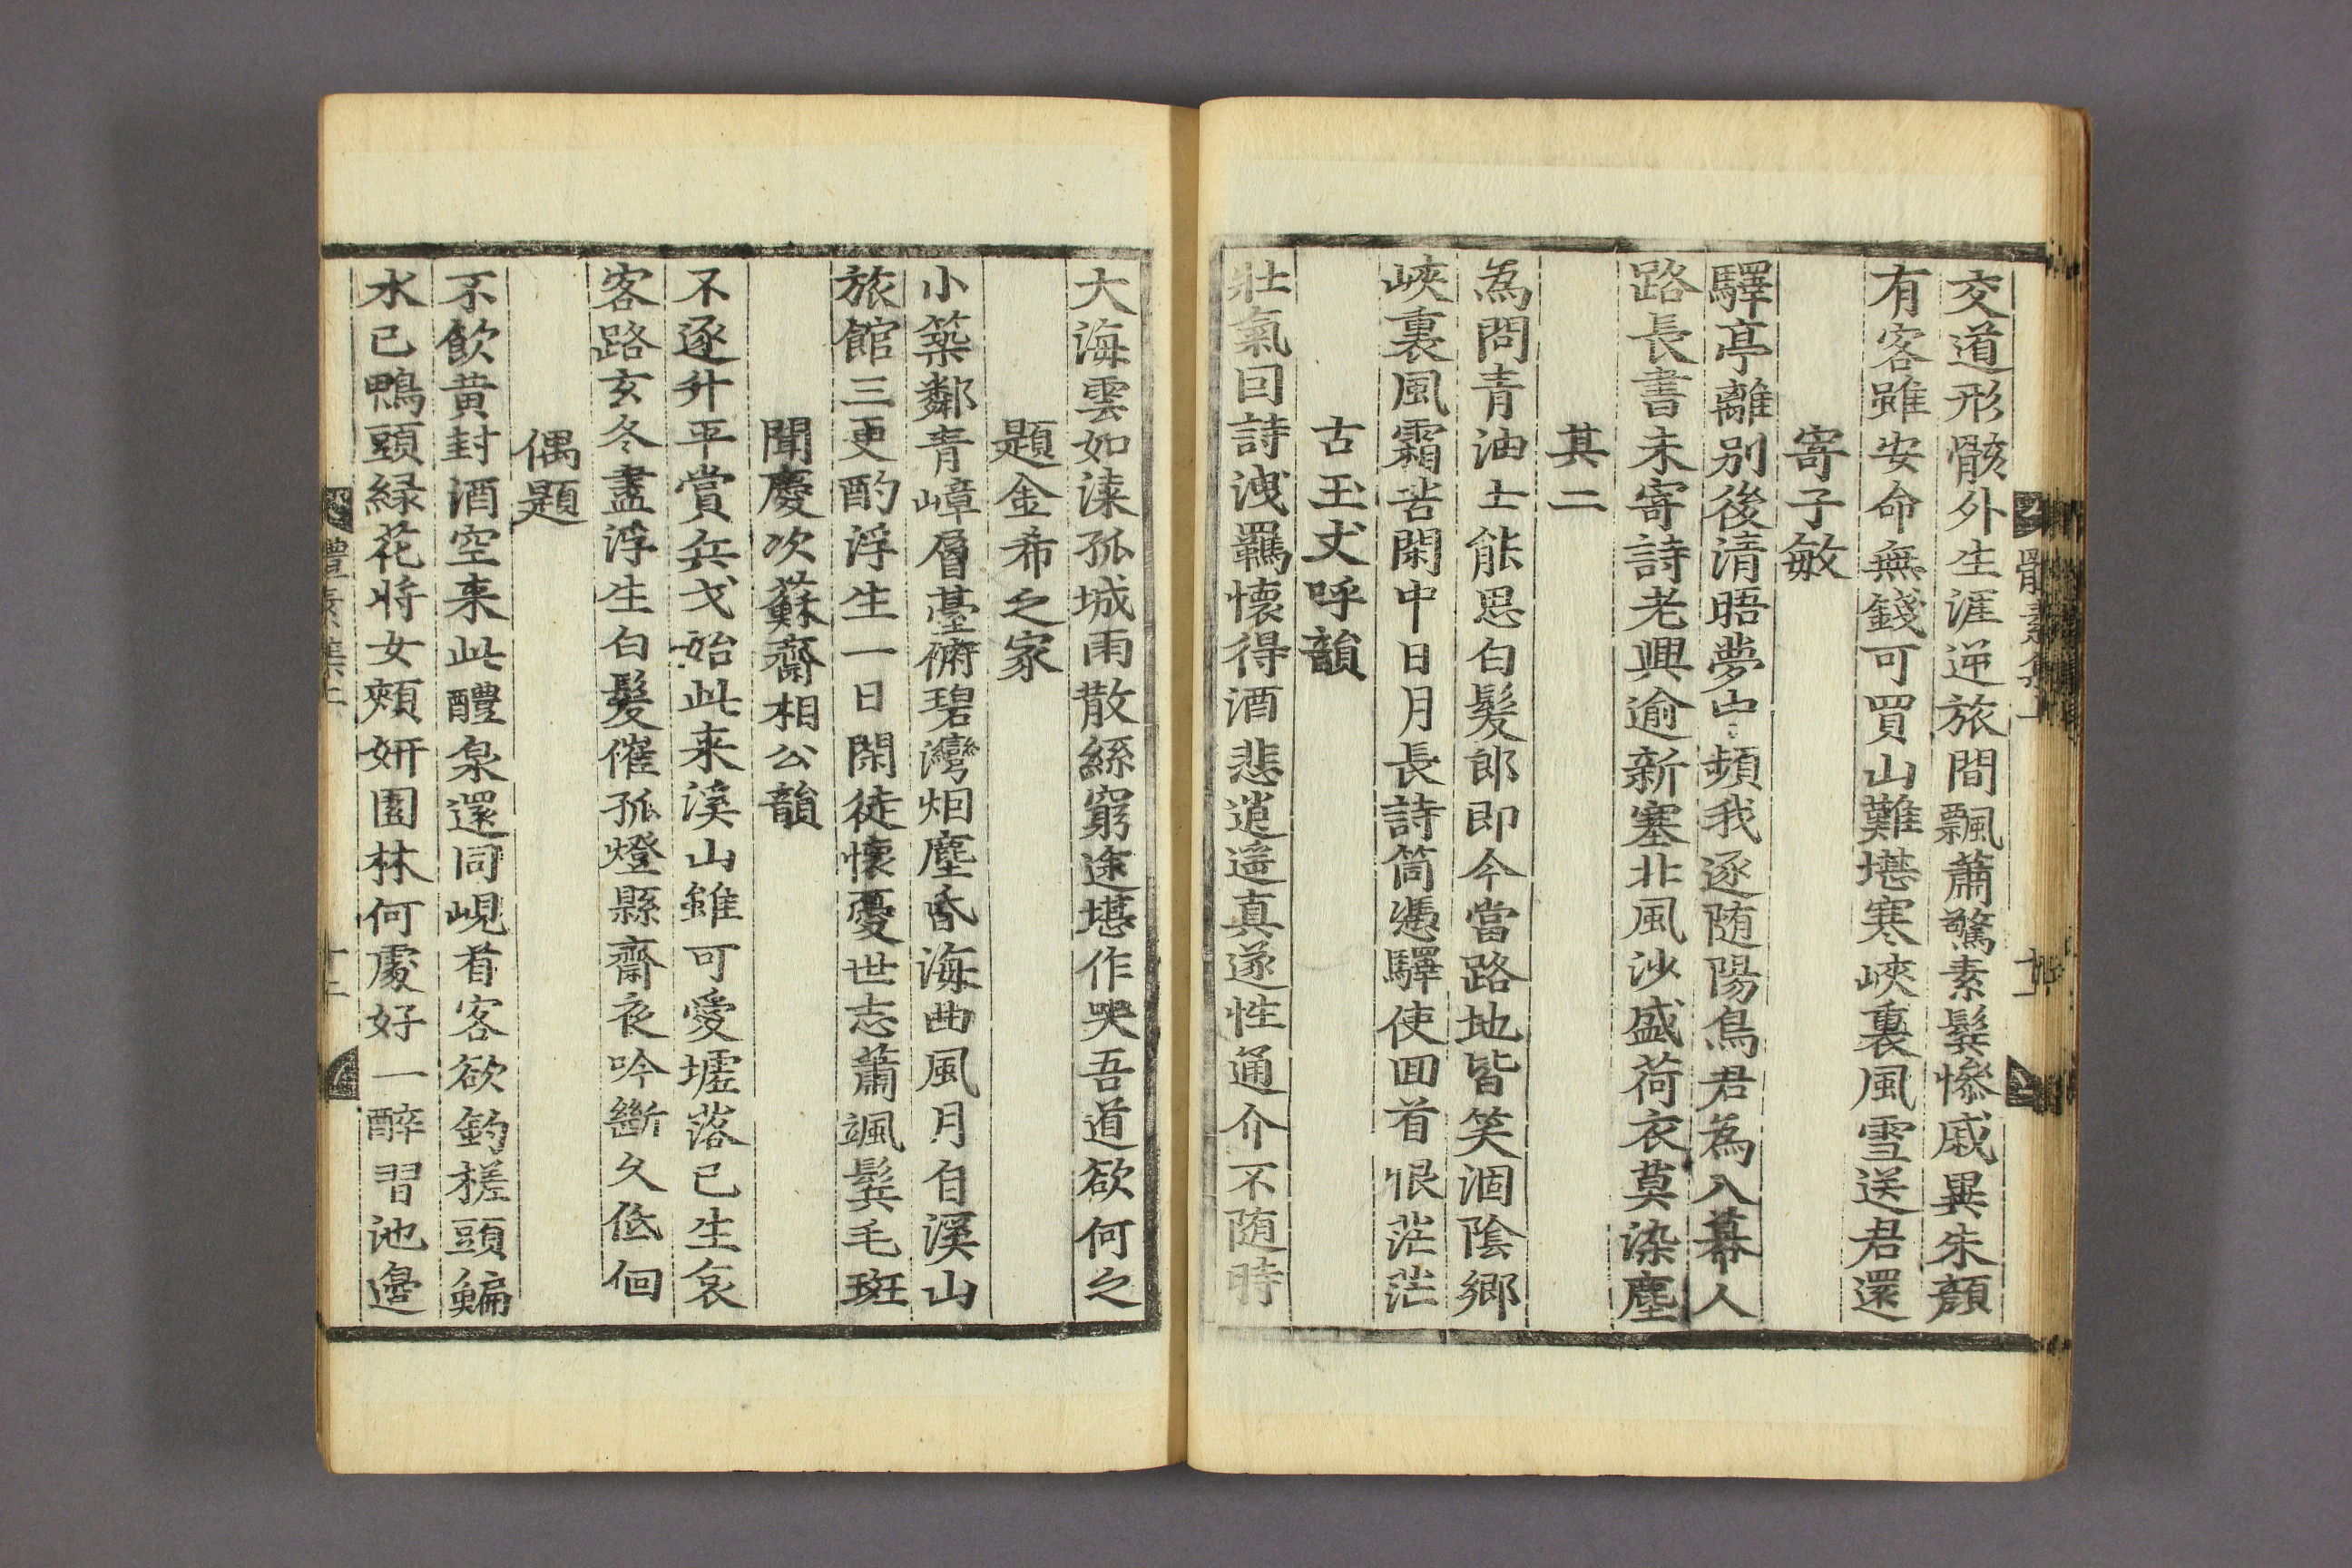 交道形骸外生涯逆旅間飄蕭驚素鬂慘戚異朱顔
有客雖安命無錢可買山難堪寒峽裏風雪送君還
寄子敏
驛亭離别後清晤夢中頻我逐随陽鳥君為入幕人
路長書未寄詩老興逾新塞北風沙盛荷衣莫染塵
其二
為問青油士能思白髮郎即今當路地皆笑涸陰鄉
峽裏風霜苦閑中日月長詩筒憑驛使回首恨茫茫
古玉丈呼韻
壯氣因詩洩羈懷得酒悲逍遥真遂性通介不随時
大海雲如潑孤城雨散絲窮途堪作哭吾道欲何之
題金希之家
小築鄰青嶂層臺俯碧灣烟塵昏海曲風月自溪山
旅館三更酌浮生一日閑徒懷憂世志蕭颯鬂毛斑
聞慶次蘇齋相公韻
不逐升平賞兵戈始此来溪山雖可愛墟落已生哀
客路玄冬盡浮生白髮催孤燈縣齋夜吟斷久低佪
偶題
不飲黄封酒空来此醴泉還同峴首客欲釣槎頭鯿
水已鴨頭緑花將女頰妍園林何處好一醉習池邊
體素集上